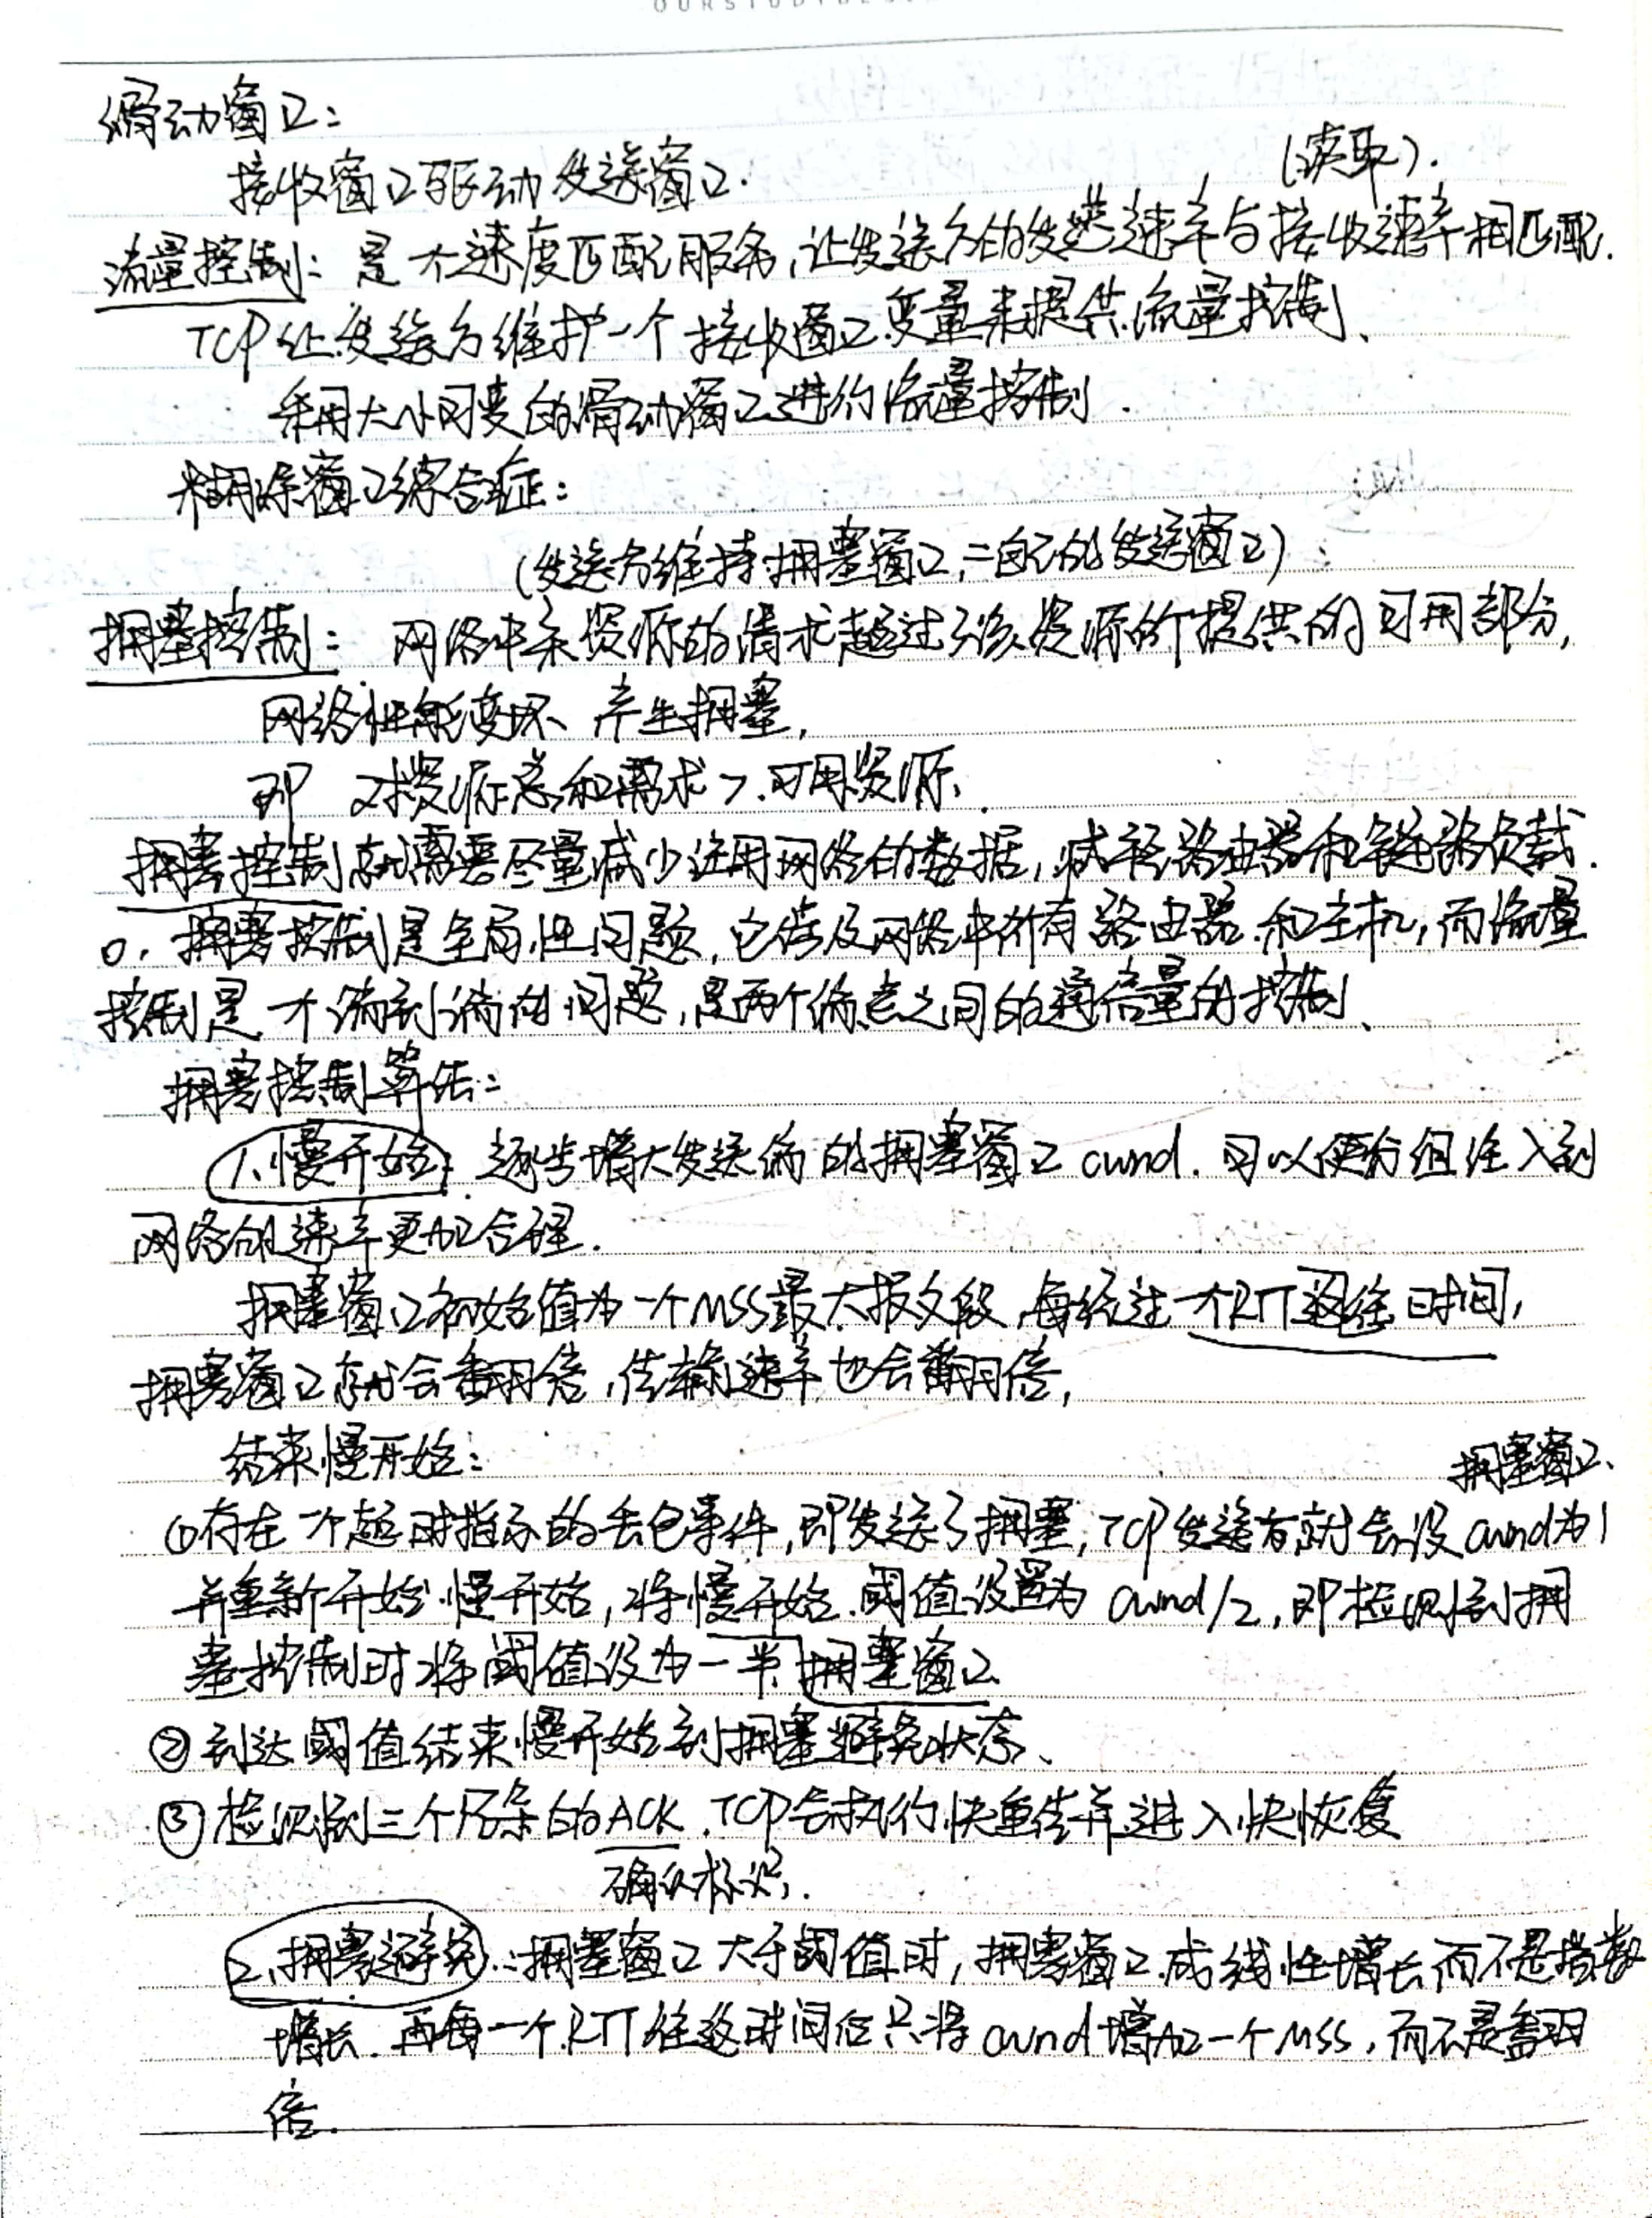 滑动窗口:
接收窗口驱动发送窗口.
(读取).
流量控制: 是个速度匹配服务,让发送方的发送速率与接收速率相匹配.
TCP让发送方维护一个接收窗口变量来提供流量控制、
采用大小可变的滑动窗口进行流量控制.
糊涂窗口综合症:
(发送方维持拥塞窗口,=自己的发送窗口)
拥塞控制: 网络中某资源的请求超过了该资源所提供的可用部分,
网络性能变坏、产生拥塞,
即 对资源总和需求>可用资源.
拥塞控制就需要尽量减少注用网络的数据,减轻路由器和链路负载.
0. 拥塞控制是全局性问题, 它涉及网络中所有路由器和主机, 而流量
控制是个端到端的问题,是两个端点之间的通信量的控制、
拥塞控制算法:
1、慢开始: 逐步增大发送端的拥塞窗口 cwnd. 可以使分组注入到
网络的速率更加合理.
拥塞窗口初始值为一个MSS最大报文段,每经过一个RTT返往时间,
拥塞窗口就会翻倍,传输速率也会翻倍,
结束慢开始:
拥塞窗口、
①存在一个超时指示的丢包事件,即发送了拥塞,TCP发送方就会设cwnd为1
并重新开始慢开始, 将慢开始阈值设置为 cwnd/2, 即检测到拥
塞控制时将阈值设为一半拥塞窗口
②到达阈值结束慢开始到拥塞避免状态、
③检测到三个冗余的ACK, TCP会执行快重传并进入快恢复
确认标识.
2、拥塞避免: 拥塞窗口大于阈值时, 拥塞窗口成线性增长而不是指数
增长. 再每一个RTT往返时间后只将cwnd增加一个MSS, 而不是翻
倍.